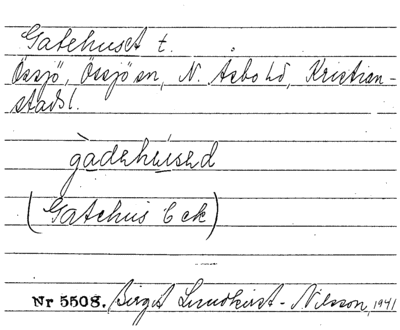 Gatehuset t.
Össjö, Össjö sn, N. Åsbo hd, Kristian-
stads l.
gàdehúsed
(Gatehus E ek)
Nr 5508. Birgit Lundkvist-Nilsson, 1941